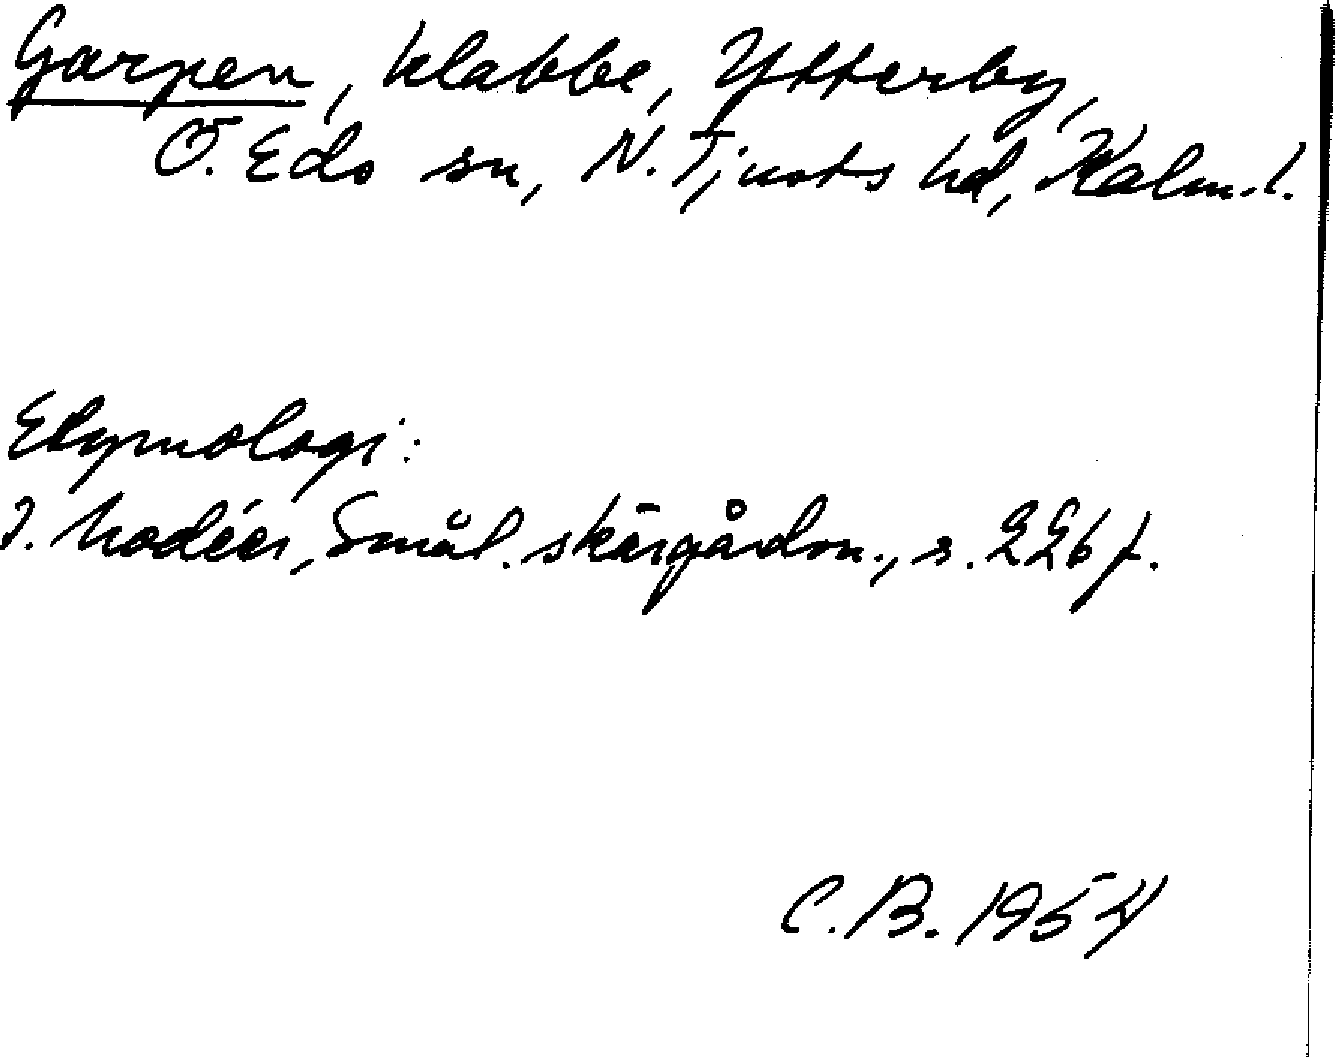 Garpen, klabbe, Ytterby,
Ö. Eds sn, N. Tjusts hd, Kalm. l.
Etymologi:
I. Modéer, Smål. skärgårdsn., s. 226 f.
C. B. 1954